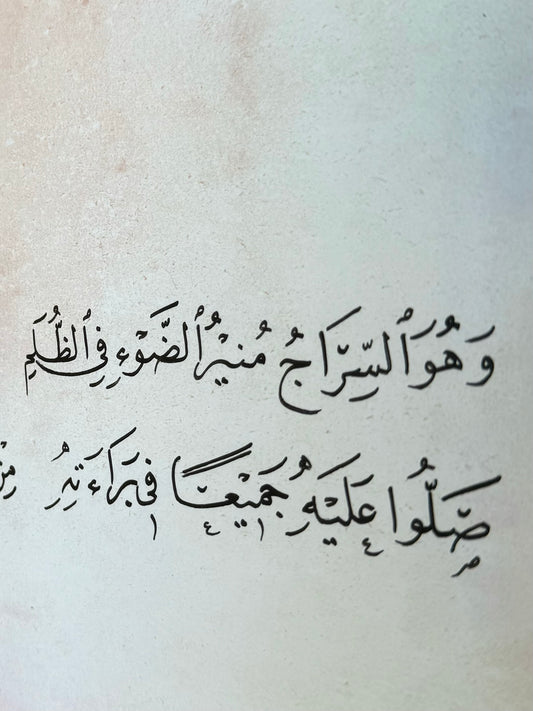 وَهُوَ ٱلسِّرَاجُ مُنِيْرُ ٱلضَّوْءِ فِي ٱلظُّلَمِ
صَلُّوا عَلَيْهِ جَمِيْعًا فِي بَرَاءَتِهِ مِنْ